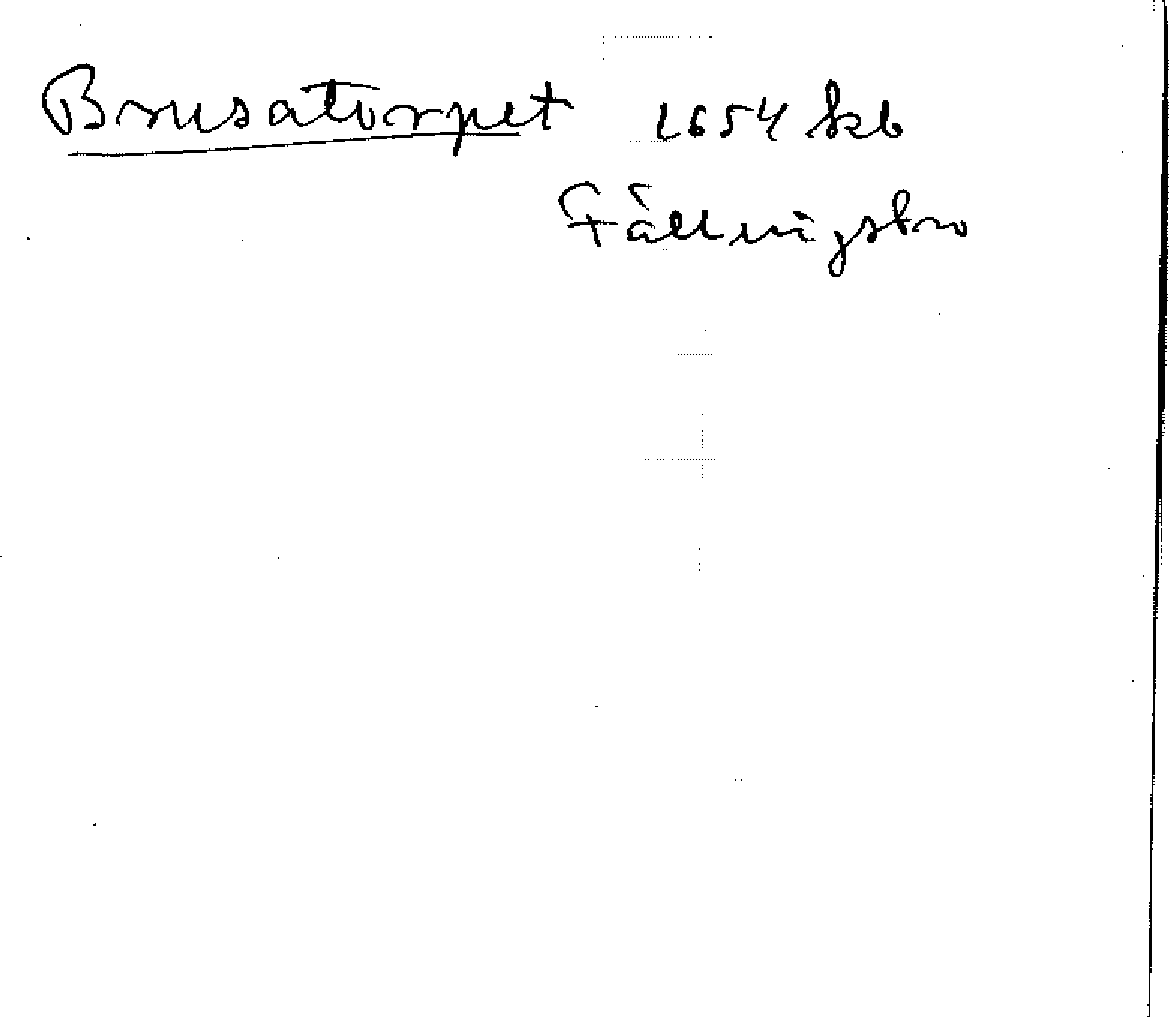 Brusatorpet 1654 Skb
Fällingsbro